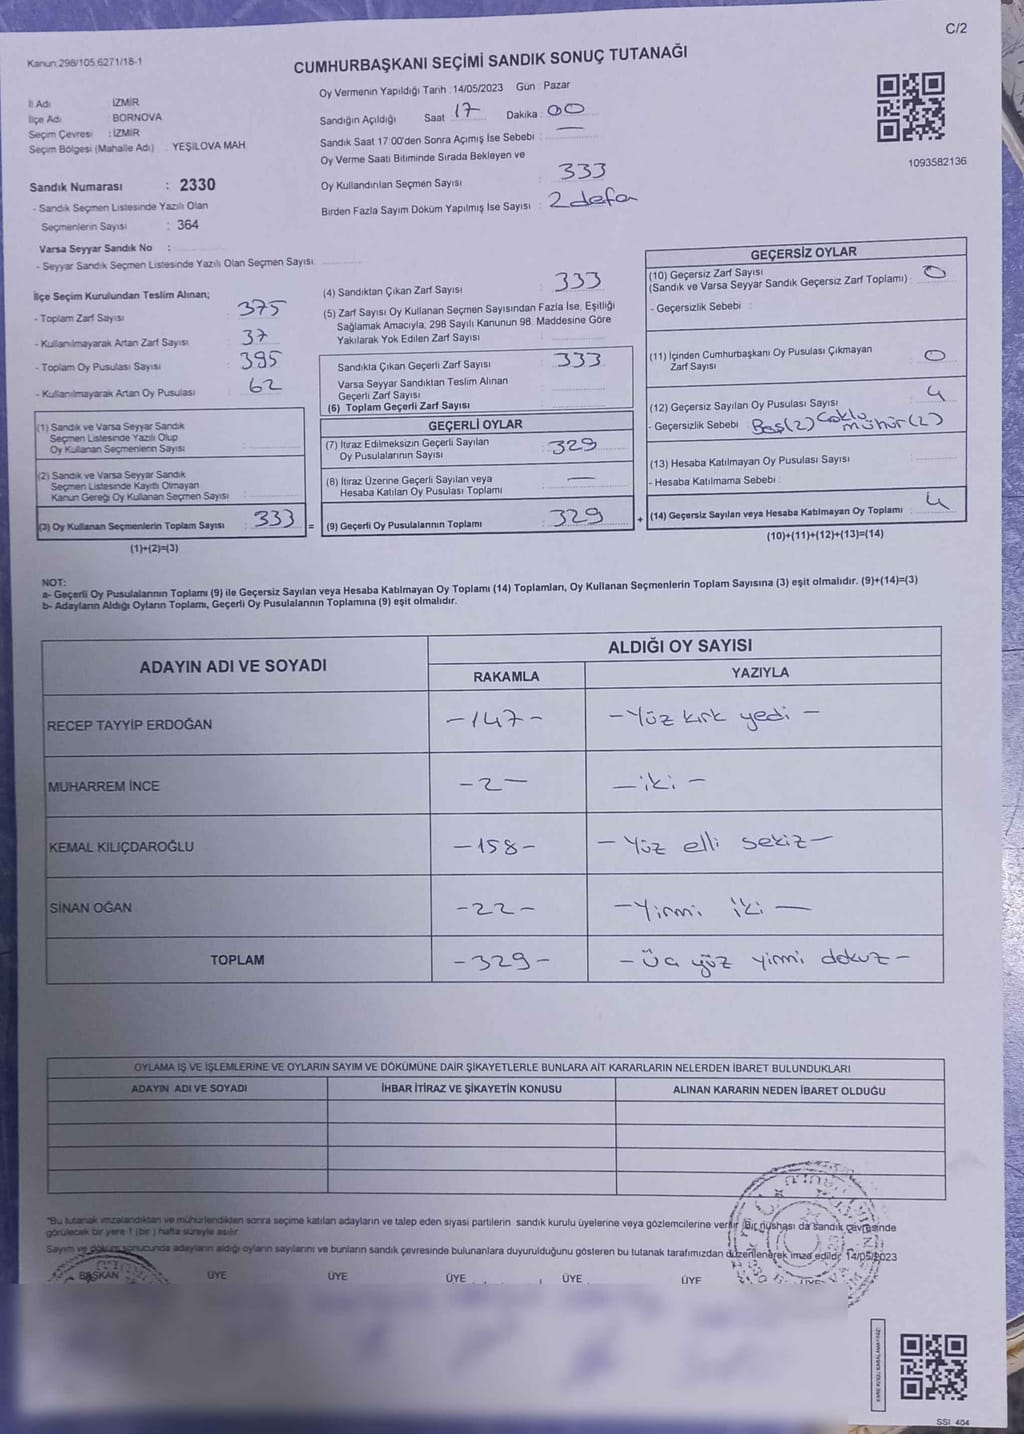 C/2
Kanun:298/105.6271/18-1
CUMHURBAŞKANI SEÇİMİ SANDIK SONUÇ TUTANAĞI
İl Adı : İZMİR
İlçe Adı : BORNOVA
Seçim Çevresi : İZMİR
Seçim Bölgesi (Mahalle Adı) : YEŞİLOVA MAH
Sandık Numarası : 2330
- Sandık Seçmen Listesinde Yazılı Olan
Seçmenlerin Sayısı : 364
Varsa Seyyar Sandık No :
- Seyyar Sandık Seçmen Listesinde Yazılı Olan Seçmen Sayısı:
Oy Vermenin Yapıldığı Tarih : 14/05/2023 Gün : Pazar
Sandığın Açıldığı Saat 17 Dakika : 00
Sandık Saat 17:00'den Sonra Açımış İse Sebebi : —
Oy Verme Saati Bitiminde Sırada Bekleyen ve
Oy Kullandırılan Seçmen Sayısı : 333
Birden Fazla Sayım Döküm Yapılmış İse Sayısı : 2 defa
1093582136
İlçe Seçim Kurulundan Teslim Alınan;
- Toplam Zarf Sayısı : 375
- Kullanılmayarak Artan Zarf Sayısı : 37
- Toplam Oy Pusulası Sayısı : 395
- Kullanılmayarak Artan Oy Pusulası : 62
(1) Sandık ve Varsa Seyyar Sandık
Seçmen Listesinde Yazılı Olup
Oy Kullanan Seçmenlerin Sayısı :
(2) Sandık ve Varsa Seyyar Sandık
Seçmen Listesinde Kayıtlı Olmayan
Kanun Gereği Oy Kullanan Seçmen Sayısı :
(3) Oy Kullanan Seçmenlerin Toplam Sayısı : 333 =
(1)+(2)=(3)
(4) Sandıktan Çıkan Zarf Sayısı : 333
(5) Zarf Sayısı Oy Kullanan Seçmen Sayısından Fazla İse, Eşitliği
Sağlamak Amacıyla, 298 Sayılı Kanunun 98. Maddesine Göre
Yakılarak Yok Edilen Zarf Sayısı :
Sandıkla Çıkan Geçerli Zarf Sayısı : 333
Varsa Seyyar Sandıktan Teslim Alınan
Geçerli Zarf Sayısı :
(6) Toplam Geçerli Zarf Sayısı :
GEÇERLİ OYLAR
(7) İtiraz Edilmeksizin Geçerli Sayılan
Oy Pusulalarının Sayısı : 329
(8) İtiraz Üzerine Geçerli Sayılan veya
Hesaba Katılan Oy Pusulası Toplamı : —
(9) Geçerli Oy Pusulalarının Toplamı : 329 +
GEÇERSİZ OYLAR
(10) Geçersiz Zarf Sayısı
(Sandık ve Varsa Seyyar Sandık Geçersiz Zarf Toplamı) : 0
- Geçersizlik Sebebi :
(11) İçinden Cumhurbaşkanı Oy Pusulası Çıkmayan
Zarf Sayısı : 0
(12) Geçersiz Sayılan Oy Pusulası Sayısı : 4
- Geçersizlik Sebebi : Boş(2) Çoklu mühür(2)
(13) Hesaba Katılmayan Oy Pusulası Sayısı :
- Hesaba Katılmama Sebebi :
(14) Geçersiz Sayılan veya Hesaba Katılmayan Oy Toplamı : 4
(10)+(11)+(12)+(13)=(14)
NOT:
a- Geçerli Oy Pusulalarının Toplamı (9) ile Geçersiz Sayılan veya Hesaba Katılmayan Oy Toplamı (14) Toplamları, Oy Kullanan Seçmenlerin Toplam Sayısına (3) eşit olmalıdır. (9)+(14)=(3)
b- Adayların Aldığı Oyların Toplamı, Geçerli Oy Pusulalarının Toplamına (9) eşit olmalıdır.
ADAYIN ADI VE SOYADI
ALDIĞI OY SAYISI
RAKAMLA
YAZIYLA
RECEP TAYYİP ERDOĞAN -147- -Yüz kırk yedi-
MUHARREM İNCE -2- -iki-
KEMAL KILIÇDAROĞLU -158- -Yüz elli sekiz-
SİNAN OĞAN -22- -Yirmi iki-
TOPLAM -329- -Üç yüz yirmi dokuz-
OYLAMA İŞ VE İŞLEMLERİNE VE OYLARIN SAYIM VE DÖKÜMÜNE DAİR ŞİKAYETLERLE BUNLARA AİT KARARLARIN NELERDEN İBARET BULUNDUKLARI
ADAYIN ADI VE SOYADI
İHBAR İTİRAZ VE ŞİKAYETİN KONUSU
ALINAN KARARIN NEDEN İBARET OLDUĞU
"Bu tutanak imzalandıktan ve mühürlendikten sonra seçime katılan adayların ve talep eden siyasi partilerin sandık kurulu üyelerine veya gözlemcilerine verilir. Bir nüshası da sandık çevresinde
görülecek bir yere 1 (bir) hafta süreyle asılır.
Sayım ve döküm sonucunda adayların aldığı oyların sayılarını ve bunların sandık çevresinde bulunanlara duyurulduğunu gösteren bu tutanak tarafımızdan düzenlenerek imza edildi. 14/05/2023
BAŞKAN ÜYE ÜYE ÜYE ÜYE ÜYE ÜYE
SSİ 404